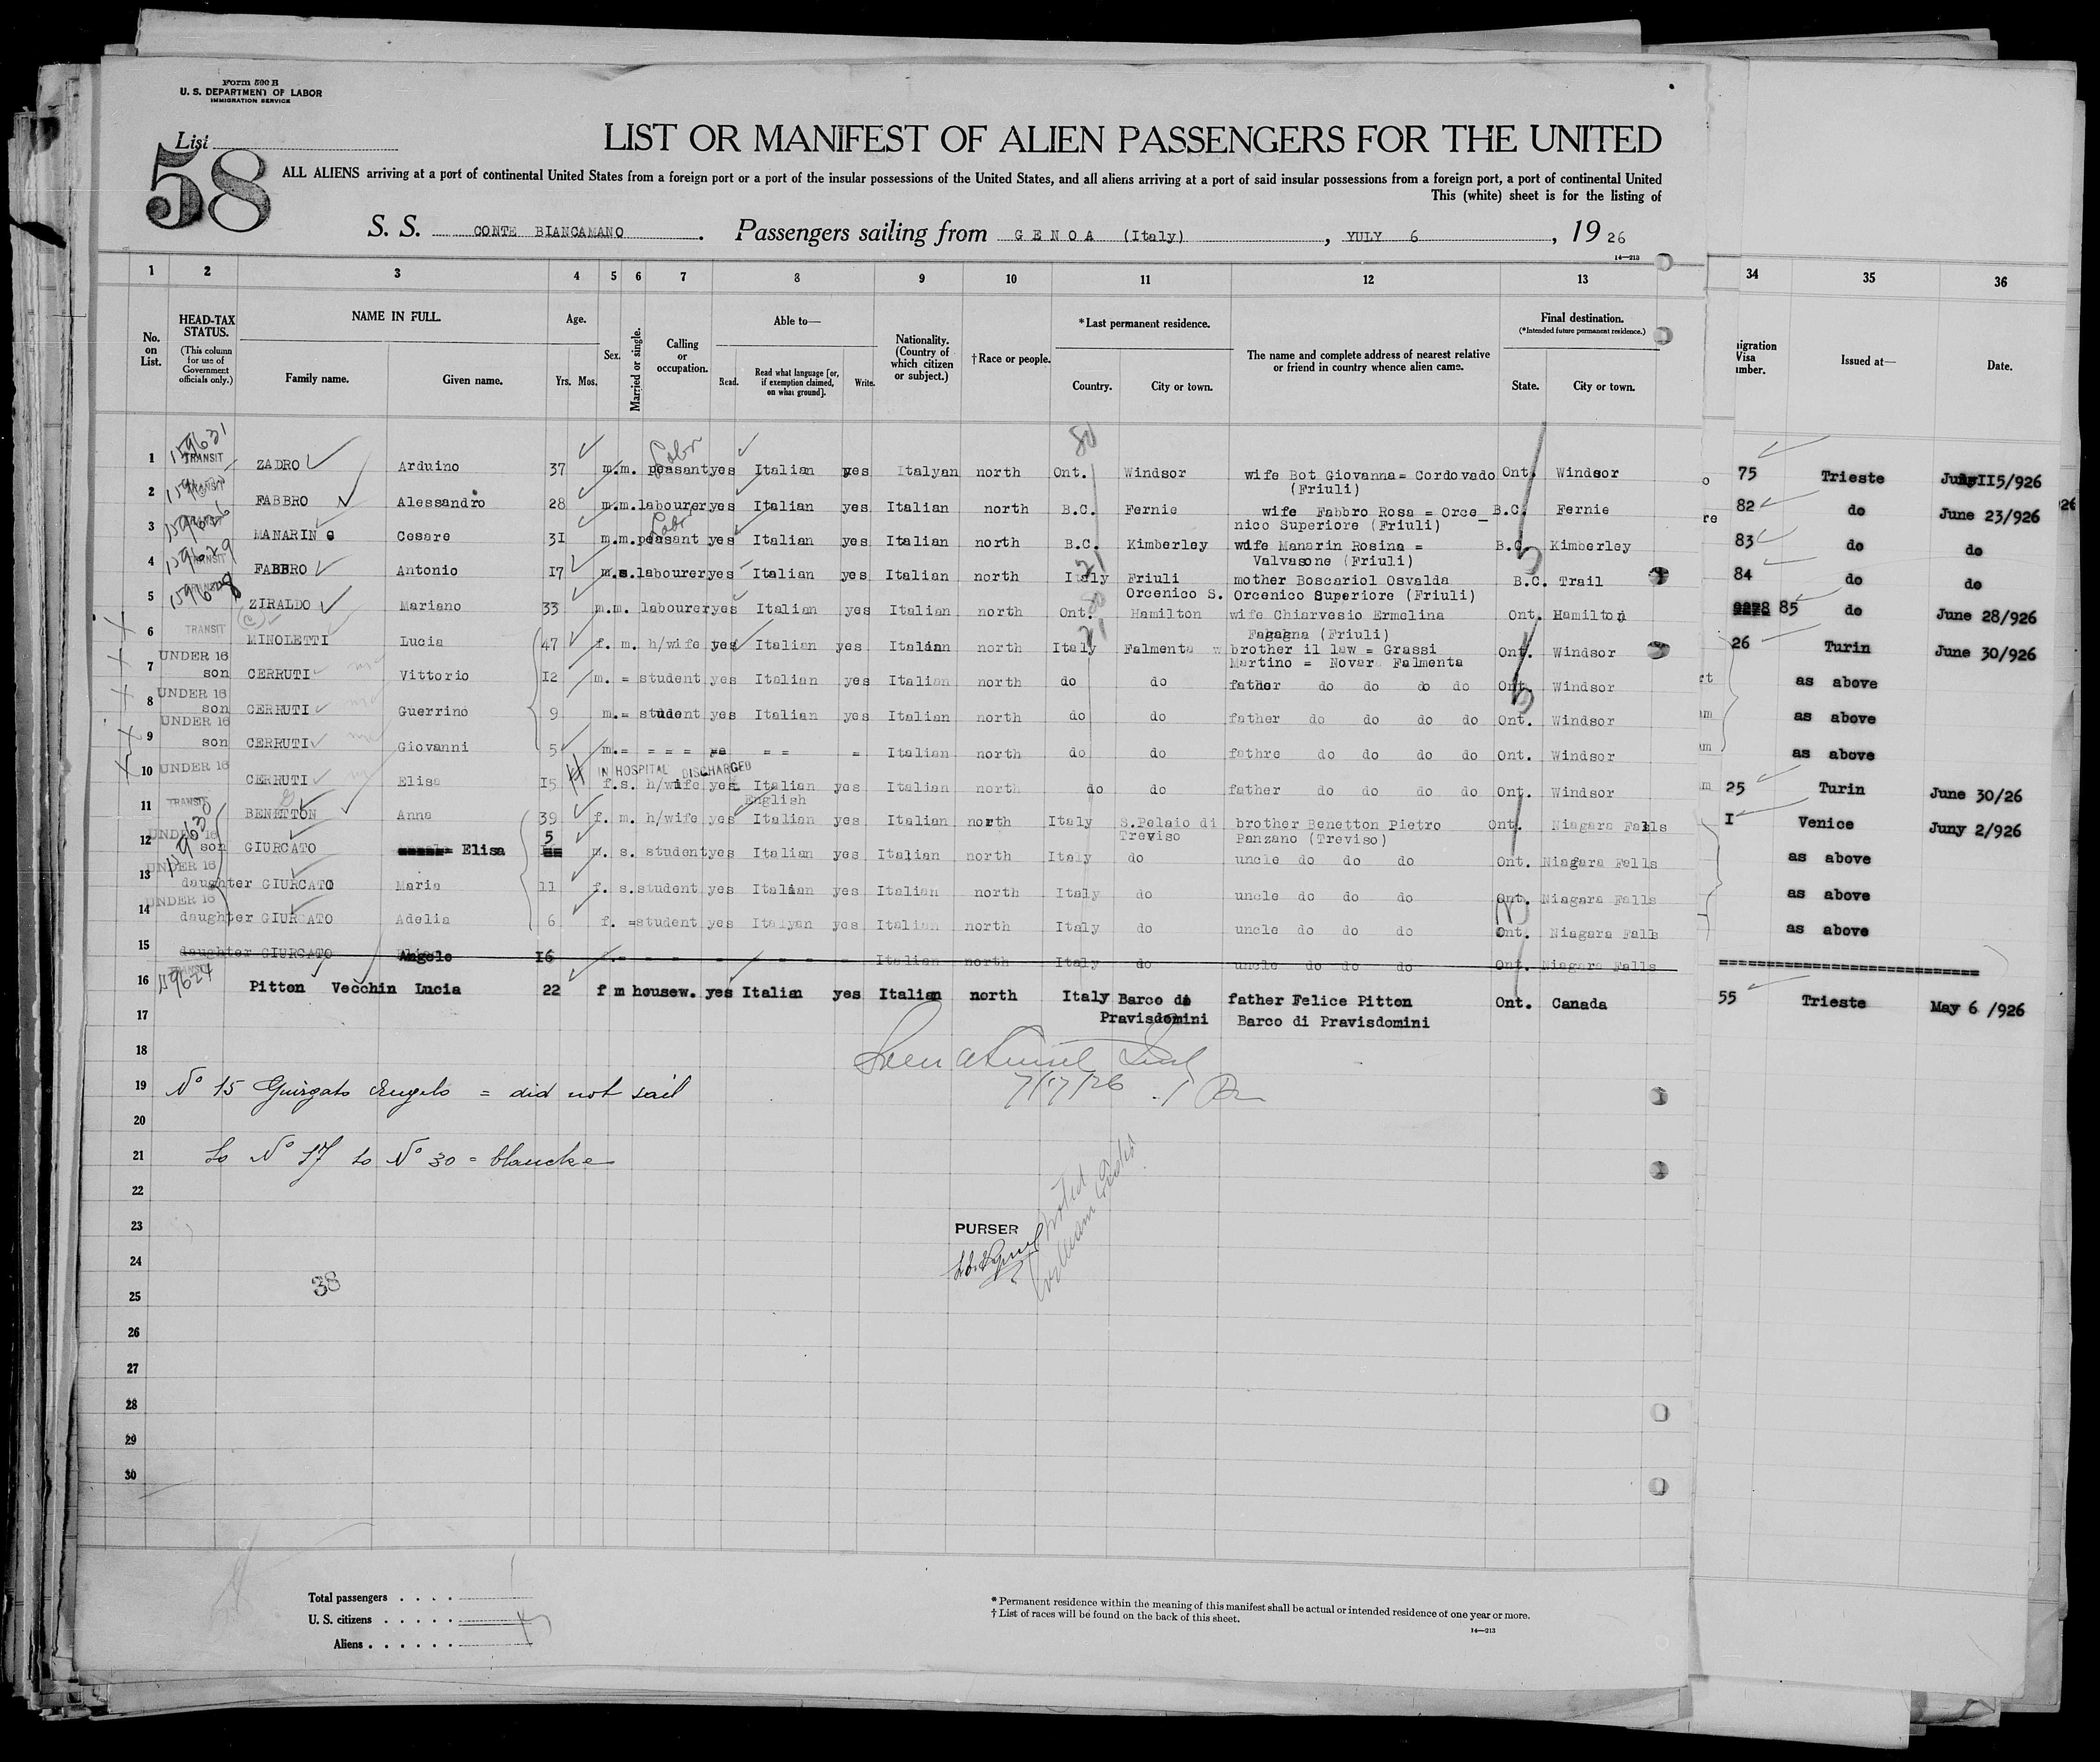 Form 500 B
U. S. DEPARTMENT OF LABOR
IMMIGRATION SERVICE
List
58
LIST OR MANIFEST OF ALIEN PASSENGERS FOR THE UNITED
ALL ALIENS arriving at a port of continental United States from a foreign port or a port of the insular possessions of the United States, and all aliens arriving at a port of said insular possessions from a foreign port, a port of continental United
This (white) sheet is for the listing of
S. S. CONTE BIANCAMANO. Passengers sailing from GENOA (Italy), YULY 6, 1926
14—213
1 2 3 4 5 6 7 8 9 10 11 12 13 34 35 36
No. on List.
HEAD-TAX STATUS.
(This column for use of Government officials only.)
NAME IN FULL.
Family name. Given name.
Age.
Yrs. Mos.
Sex.
Married or single.
Calling or occupation.
Able to—
Read. Read what language [or, if exemption claimed, on what ground]. Write.
Nationality. (Country of which citizen or subject.)
†Race or people.
*Last permanent residence.
Country. City or town.
The name and complete address of nearest relative or friend in country whence alien came.
Final destination.
(*Intended future permanent residence.)
State. City or town.
igration Visa umber.
Issued at—
Date.
1 159631 TRANSIT ZADRO Arduino 37 m. m. peasant Labr yes Italian yes Italyan north Ont. Windsor wife Bot Giovanna= Cordovado Ont. Windsor 75 Trieste II5/926
(Friuli)
2 TRANSIT FABBRO Alessandro 28 m. m. labourer yes Italian yes Italian north B.C. Fernie wife Fabbro Rosa = Orce_ B.C. Fernie 82 do June 23/926
nico Superiore (Friuli)
3 MANARIN Cesare 31 m. m. peasant Labr yes Italian yes Italian north B.C. Kimberley wife Manarin Rosina = B.C. Kimberley 83 do do
Valvasone (Friuli)
4 159629 TRANSIT FABBRO Antonio I7 m. s. labourer yes Italian yes Italian north Italy Friuli mother Boscariol Osvalda B.C. Trail 84 do do
Orcenico S. Orcenico Superiore (Friuli)
5 159628 ZIRALDO Mariano 33 m. m. labourer yes Italian yes Italian north Ont. Hamilton wife Chiarvesio Ermelina Ont. Hamilton 85 do June 28/926
Fagagna (Friuli)
6 TRANSIT MINOLETTI Lucia 47 f. m. h/wife yes Italian yes Italian north Italy Falmenta brother il law = Grassi Ont. Windsor 26 Turin June 30/926
Martino = Novara Falmenta
7 UNDER 16 son CERRUTI Vittorio I2 m. = student yes Italian yes Italian north do do father do do do do Ont. Windsor as above
8 UNDER 16 son CERRUTI Guerrino 9 m. = student yes Italian yes Italian north do do father do do do do Ont. Windsor as above
9 UNDER 16 son CERRUTI Giovanni 5 m. = = = = = = = Italian north do do fathre do do do do Ont. Windsor as above
IN HOSPITAL DISCHARGED
10 UNDER 16 CERRUTI Elisa I5 f. s. h/wife yes Italian yes Italian north do do father do do do do Ont. Windsor 25 Turin June 30/26
English
11 TRANSIT BENETTON Anna 39 f. m. h/wife yes Italian yes Italian north Italy S.Pelaio di brother Benetton Pietro Ont. Niagara Falls I Venice Juny 2/926
Treviso Panzano (Treviso)
12 UNDER 16 son GIURCATO Elisa 5 m. s. student yes Italian yes Italian north Italy do uncle do do do Ont. Niagara Falls as above
13 UNDER 16 daughter GIURCATO Maria 11 f. s. student yes Italian yes Italian north Italy do uncle do do do Ont. Niagara Falls as above
14 UNDER 16 daughter GIURCATO Adelia 6 f. = student yes Italyan yes Italian north Italy do uncle do do do Ont. Niagara Falls as above
15 daughter GIURCATO Angelo I6 Italian north Italy do uncle do do do Ont. Niagara Falls
16 159624 TRANSIT Pitton Vecchin Lucia 22 f m housew. yes Italian yes Italian north Italy Barco di father Felice Pitton Ont. Canada 55 Trieste May 6 /926
17 Pravisdomini Barco di Pravisdomini
18
7/17/26
19 Nº 15 Guirgato Angelo = did not sail
20
21 to Nº 17 to Nº 30 = blancke
22
23 PURSER
24
38
25
26
27
28
29
30
Total passengers
U. S. citizens
Aliens
* Permanent residence within the meaning of this manifest shall be actual or intended residence of one year or more.
† List of races will be found on the back of this sheet.
14—213